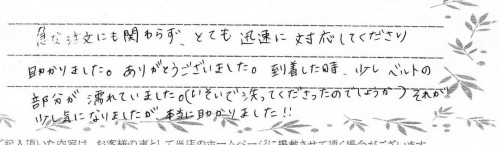 急な注文にも関わらず、とても迅速に対応してくださり
助かりました。ありがとうございました。到着した時、少しベルトの
部分が濡れていました。(いそいで洗ってくださったのでしょうか)それが
少し気になりましたが、本当に助かりました!!
ご記入頂いた内容は、お客様の声として当店のホームページに掲載させて頂く場合がございます